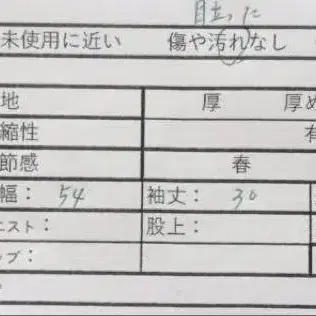 目立った
未使用に近い 傷や汚れなし
地 厚 厚め
縮性 有
節感 春
幅： 54 袖丈： 30
エスト： 股上：
ップ：